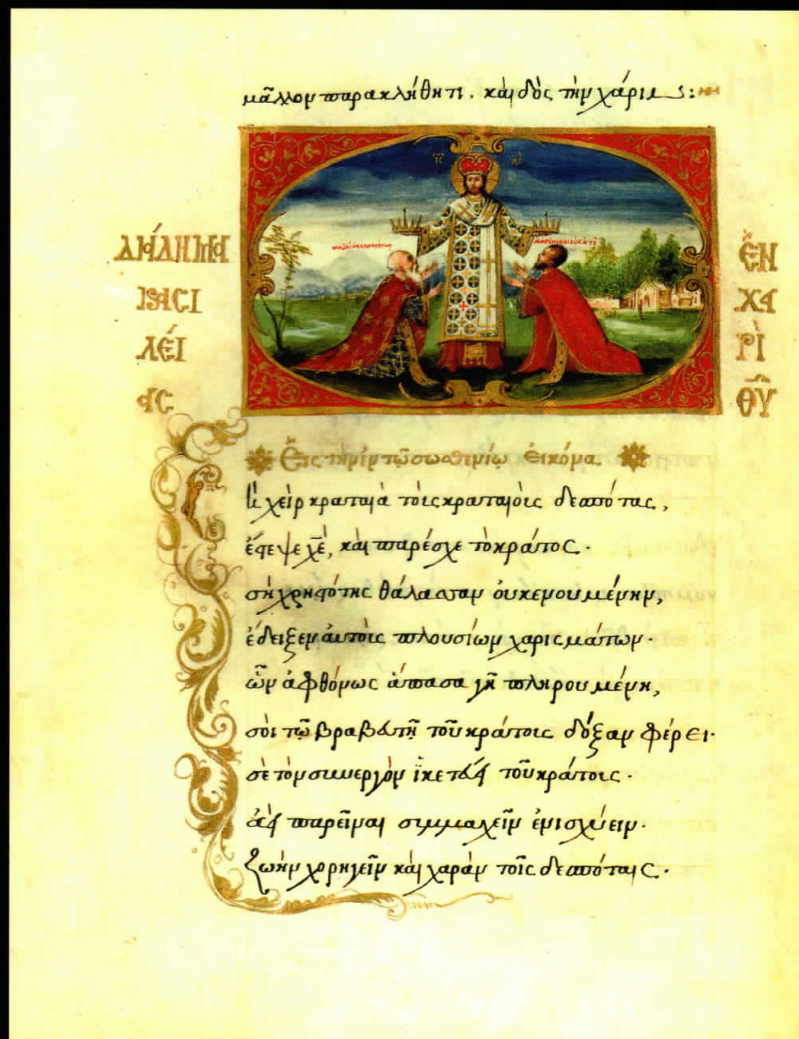 μᾶλλον παρακλήθητι. καὶ δὸς τὴν χάριν:
ΔΙΆΔΗΜΑ
ΒΑΣΙ
ΛΕΊ
ΑΣ
ἘΝ
ΧΆ
ΡΙ
ΘΥ
Εἰς τὴν ἐν τῷ εἰκόνα.
χεὶρ κραταιὰ τοῖς κραταιοῖς δεσπότας,
ἔστεψε χ̅ε̅, καὶ παρέσχε τὸ κράτος.
σὴ χρηστότης θάλασσαν οὐ κενουμένην,
ἔδειξεν αὐτοῖς πλουσίων χαρισμάτων.
ὧν ἀφθόνως ἅπασα γῆ πληρουμένη,
σοὶ τῷ βραβευτῇ τοῦ κράτους δόξαν φέρει.
σὲ τὸν συνεργὸν ἱκετεύει τοῦ κράτους.
ἀεὶ παρεῖναι συμμαχεῖν ἐνισχύειν.
ζωὴν χορηγεῖν καὶ χαρὰν τοῖς δεσπόταις.